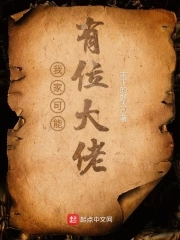 我家可能
有位大佬
起点中文网